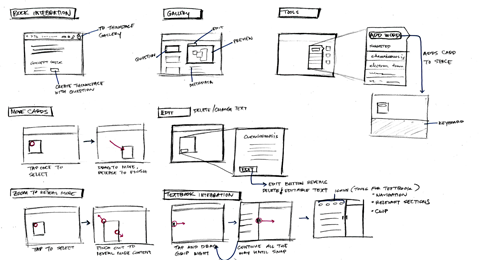 BOOK INTEGRATION
TO THINKSPACE
GALLERY
CREATE THINKSPACE
WITH QUESTION
GALLERY
EDIT
PREVIEW
QUESTION
TOOLS
ADD WORDS
ADDS CARD
TO SPACE
KEYBOARD
MOVE CARDS
TAP ONCE TO
SELECT
DRAG TO MOVE,
RELEASE TO FINISH
EDIT
DELETE/CHANGE TEXT
EDIT
EDIT BUTTON REVEALS
DELETE/EDITABLE TEXT
ZOOM TO REVEAL MORE
TAP TO SELECT
PINCH OUT TO
REVEAL MORE CONTENT
TEXTBOOK INTEGRATION
TAP AND DRAG
GRIP RIGHT
CONTINUE ALL THE
WAY UNTIL SNAP
(TOOLS FOR TEXTBOOK)
• NAVIGATION
• RELEVANT SECTIONS